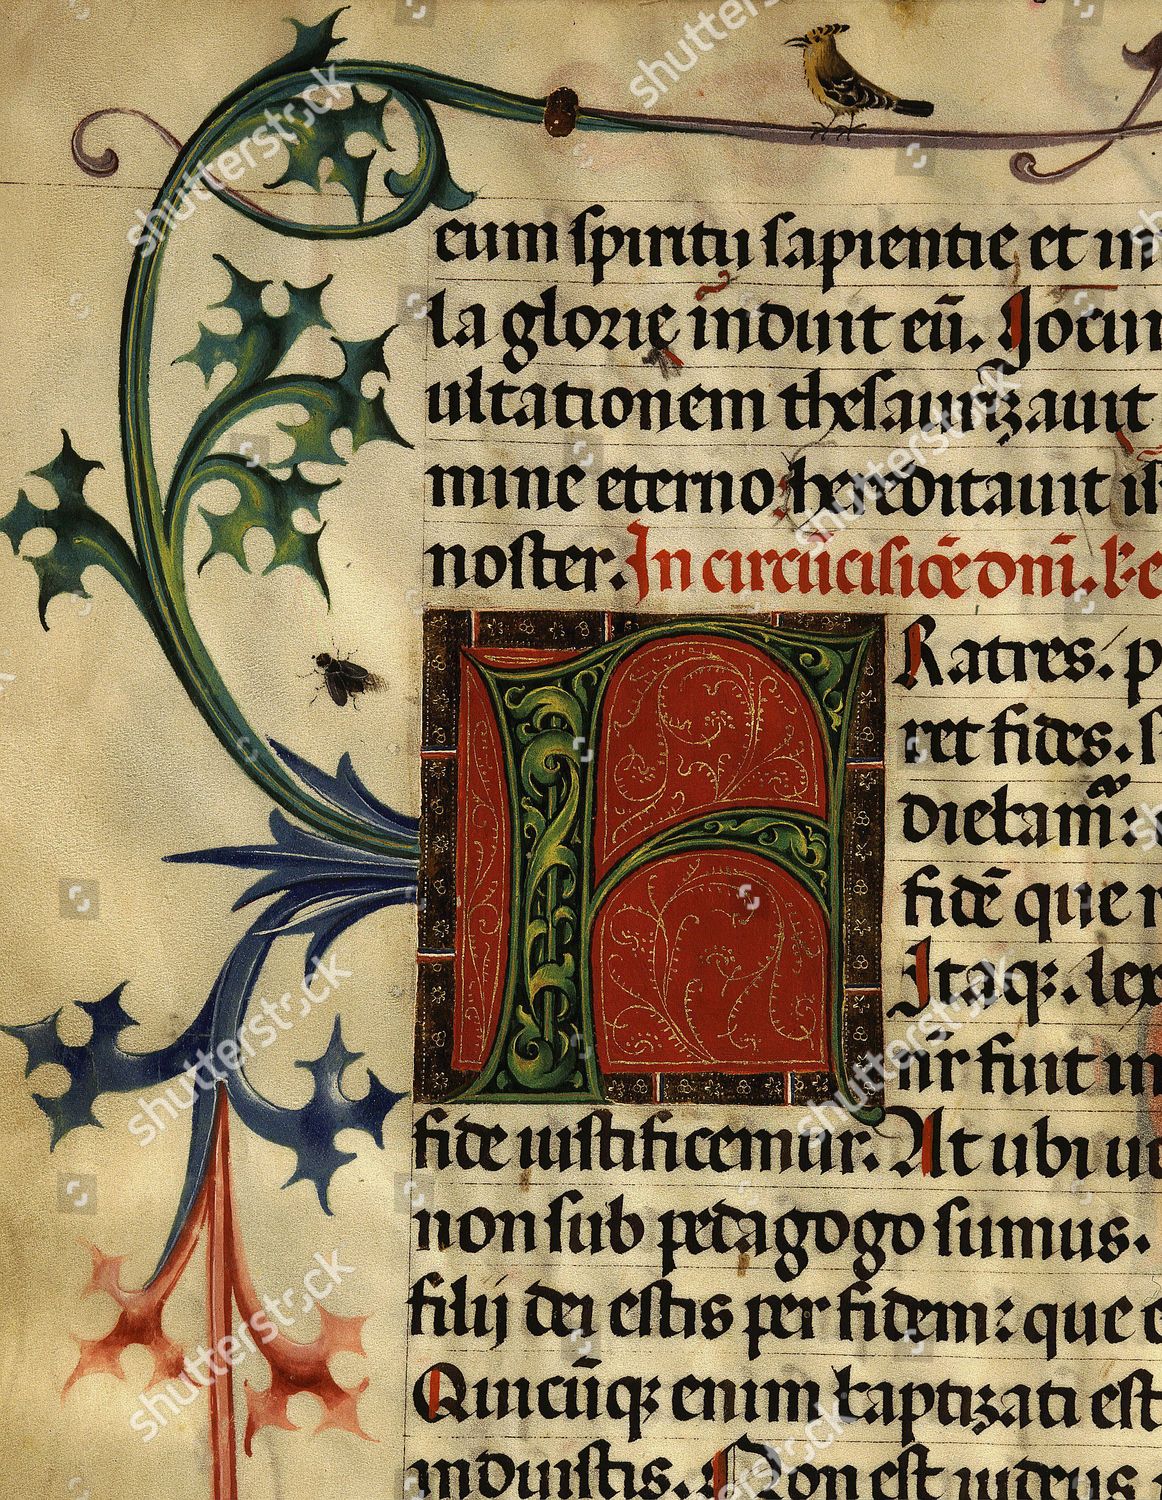 eum spiritu sapientie et in
la glorie induit eū. Iocun
ultationem thesaurizauit
mine eterno hereditauit
noster. In circūcisiōe dn̄i.
Ratres. p
ret fides. s
dictam
fidē que
Itaqꝫ. lex
ur fuit in
fide iustificemur. At ubi ue
non sub pedagogo sumus.
filij dei estis per fidem: que
Quicūqꝫ enim baptizati est
induistis. Non est iudeus